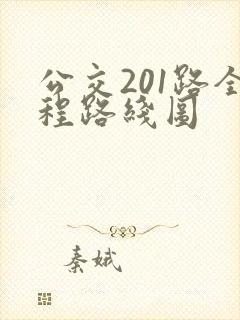 公交201路全
程路线图
秦娥